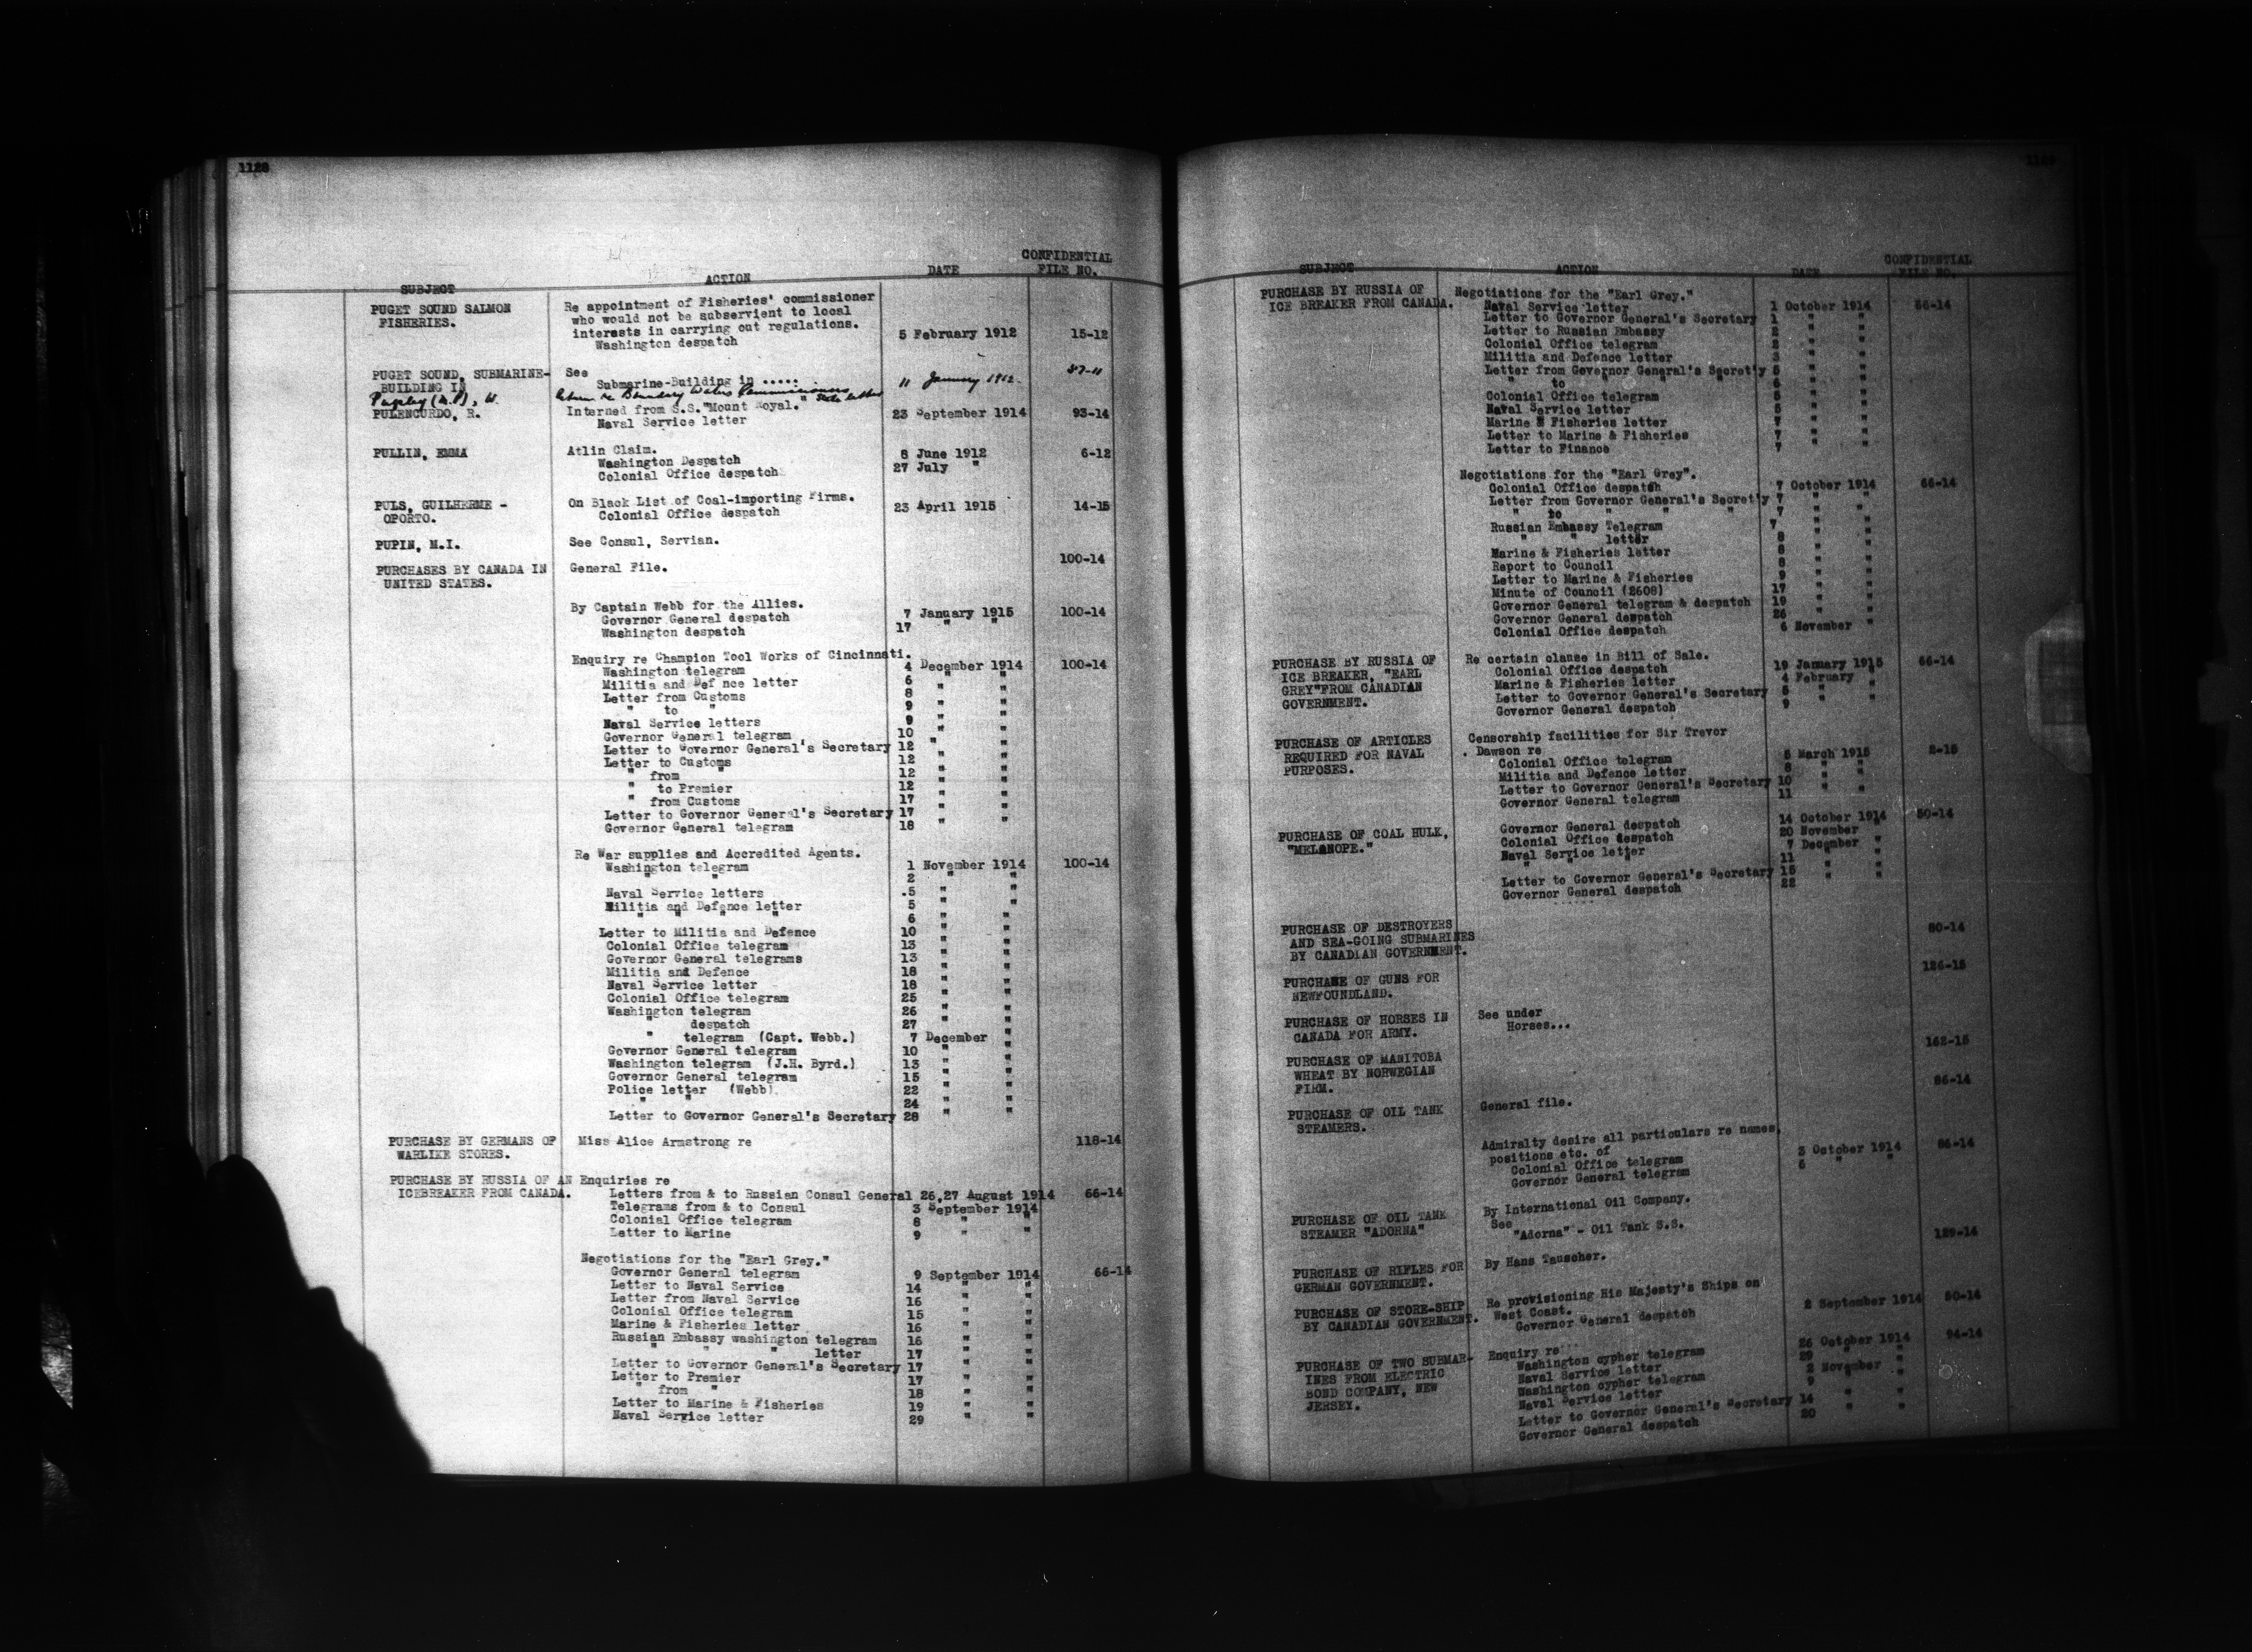 1128
SUBJECT ACTION DATE CONFIDENTIAL FILE NO.
PUGET SOUND SALMON FISHERIES.
Re appointment of Fisheries' commissioner
who would not be subservient to local
interests in carrying out regulations.
Washington despatch 5 February 1912 15-12
PUGET SOUND, SUBMARINE-BUILDING IN
See
Submarine-Building in .....
Pugsley (M.P), W. Return re Boundary Waters Commissioners State letter 11 January 1912 37-11
PULENCURDO, R. Interned from S.S."Mount Royal."
Naval Service letter 23 September 1914 93-14
PULLIN, EMMA Atlin Claim.
Washington Despatch 8 June 1912 6-12
Colonial Office despatch 27 July "
PULS, GUILHERME - OPORTO.
On Black List of Coal-importing Firms.
Colonial Office despatch 23 April 1915 14-15
PUPIN, M.I. See Consul, Servian.
PURCHASES BY CANADA IN UNITED STATES.
General File. 100-14
By Captain Webb for the Allies.
Governor General despatch 7 January 1915 100-14
Washington despatch 17 " "
Enquiry re Champion Tool Works of Cincinnati.
Washington telegram 4 December 1914 100-14
Militia and Def nce letter 6 " "
Letter from Customs 8 " "
" to " 9 " "
Naval Service letters 9 " "
Governor General telegram 10 " "
Letter to Governor General's Secretary 12 " "
Letter to Customs 12 " "
" from " 12 " "
" to Premier 12 " "
" from Customs 17 " "
Letter to Governor General's Secretary 17 " "
Governor General telegram 18 " "
Re War supplies and Accredited Agents.
Washington telegram 1 November 1914 100-14
" " 2 " "
Naval Service letters .5 " "
Militia and Defence letter 5 " "
" " " " 6 " "
Letter to Militia and Defence 10 " "
Colonial Office telegram 13 " "
Governor General telegrams 13 " "
Militia and Defence 18 " "
Naval Service letter 18 " "
Colonial Office telegram 25 " "
Washington telegram 26 " "
" despatch 27 " "
" telegram (Capt. Webb.) 7 December "
Governor General telegram 10 " "
Washington telegram (J.H. Byrd.) 13 " "
Governor General telegram 15 " "
Police letter (Webb) 22 " "
" " 24 " "
Letter to Governor General's Secretary 28 " "
PURCHASE BY GERMANS OF WARLIKE STORES.
Miss Alice Armstrong re 118-14
PURCHASE BY RUSSIA OF AN ICEBREAKER FROM CANADA.
Enquiries re
Letters from & to Russian Consul General 26,27 August 1914 66-14
Telegrams from & to Consul 3 September 1914
Colonial Office telegram 8 " "
Letter to Marine 9 " "
Negotiations for the "Earl Grey."
Governor General telegram 9 September 1914 66-14
Letter to Naval Service 14 " "
Letter from Naval Service 16 " "
Colonial Office telegram 15 " "
Marine & Fisheries letter 16 " "
Russian Embassy washington telegram 16 " "
" " " letter 17 " "
Letter to Governor General's Secretary 17 " "
Letter to Premier 17 " "
" from " 18 " "
Letter to Marine & Fisheries 19 " "
Naval Service letter 29 " "
SUBJECT ACTION DATE CONFIDENTIAL FILE NO.
PURCHASE BY RUSSIA OF ICE BREAKER FROM CANADA.
Negotiations for the "Earl Grey."
Naval Service letter 1 October 1914 66-14
Letter to Governor General's Secretary 1 " "
Letter to Russian Embassy 2 " "
Colonial Office telegram 2 " "
Militia and Defence letter 3 " "
Letter from Governor General's Secret'y 5 " "
" to " " " 6 " "
Colonial Office telegram 5 " "
Naval Service letter 5 " "
Marine & Fisheries letter 7 " "
Letter to Marine & Fisheries 7 " "
Letter to Finance 7 " "
Negotiations for the "Earl Grey".
Colonial Office despatch 7 October 1914 66-14
Letter from Governor General's Secret'y 7 " "
" to " " " 7 " "
Russian Embassy Telegram 7 " "
" " letter 8 " "
Marine & Fisheries letter 8 " "
Report to Council 8 " "
Letter to Marine & Fisheries 9 " "
Minute of Council (2608) 17 " "
Governor General telegram & despatch 19 " "
Governor General despatch 26 " "
Colonial Office despatch 6 November "
PURCHASE BY RUSSIA OF ICE BREAKER, "EARL GREY"FROM CANADIAN GOVERNMENT.
Re certain clause in Bill of Sale.
Colonial Office despatch 19 January 1915 66-14
Marine & Fisheries letter 4 February "
Letter to Governor General's Secretary 5 " "
Governor General despatch 9 " "
PURCHASE OF ARTICLES REQUIRED FOR NAVAL PURPOSES.
Censorship facilities for Sir Trevor
Dawson re
Colonial Office telegram 5 March 1915 2-15
Militia and Defence letter 8 " "
Letter to Governor General's Secretary 10 " "
Governor General telegram 11 " "
PURCHASE OF COAL HULK, "MELANOPE."
Governor General despatch 14 October 1914 50-14
Colonial Office despatch 20 November "
Naval Service letter 7 December "
" " " 11 " "
Letter to Governor General's Secretary 15 " "
Governor General despatch 22 " "
PURCHASE OF DESTROYERS AND SEA-GOING SUBMARINES BY CANADIAN GOVERNMENT. 80-14
PURCHASE OF GUNS FOR NEWFOUNDLAND. 126-15
PURCHASE OF HORSES IN CANADA FOR ARMY.
See under
Horses...
PURCHASE OF MANITOBA WHEAT BY NORWEGIAN FIRM. 162-15
PURCHASE OF OIL TANK STEAMERS.
General file. 86-14
Admiralty desire all particulars re names,
positions etc. of
Colonial Office telegram 3 October 1914 86-14
Governor General telegram 6 " "
PURCHASE OF OIL TANK STEAMER "ADORNA"
By International Oil Company.
See
"Adorna" - Oil Tank S.S.
PURCHASE OF RIFLES FOR GERMAN GOVERNMENT.
By Hans Tauscher. 129-14
PURCHASE OF STORE-SHIP BY CANADIAN GOVERNMENT.
Re provisioning His Majesty's Ships on
West Coast.
Governor General despatch 2 September 1914 50-14
PURCHASE OF TWO SUBMARINES FROM ELECTRIC BOND COMPANY, NEW JERSEY.
Enquiry re
Washington cypher telegram 26 October 1914 94-14
Naval Service letter 29 " "
Washington cypher telegram 2 November "
Naval Service letter 9 " "
Letter to Governor General's Secretary 14 " "
Governor General despatch 20 " "